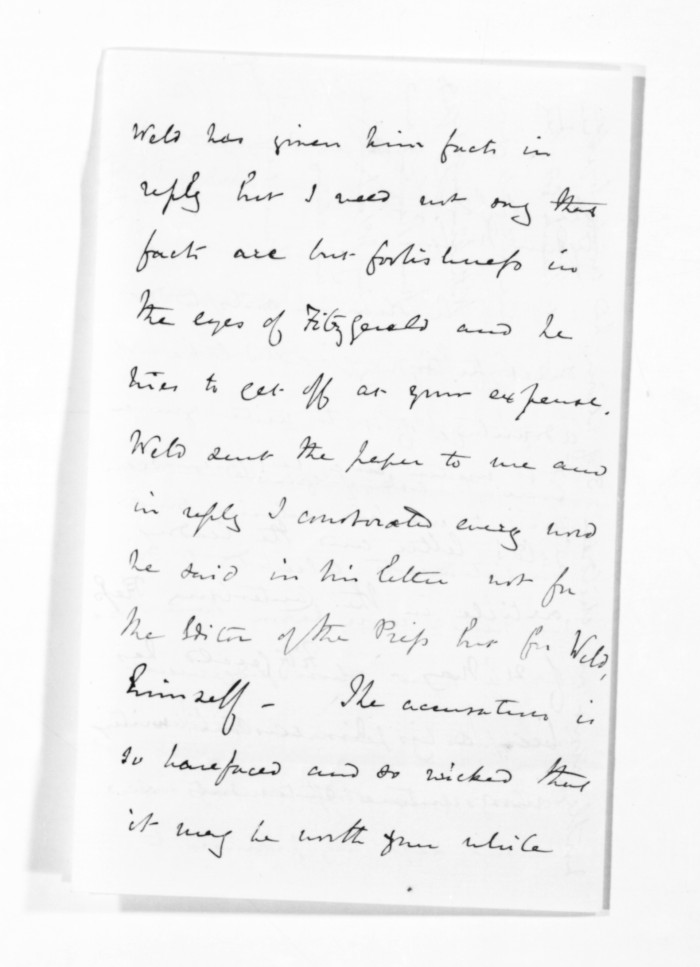 Weld has given him facts in
reply but I need not say that
facts are but foolishness in
the eyes of FitzGerald and he
tries to get off at your expense.
Weld sent the paper to me and
in reply I corroborated every word
he said in his letter not for
the Editor of the Press but for Weld,
himself – The accusation is
so barefaced and so wicked that
it may be worth your while